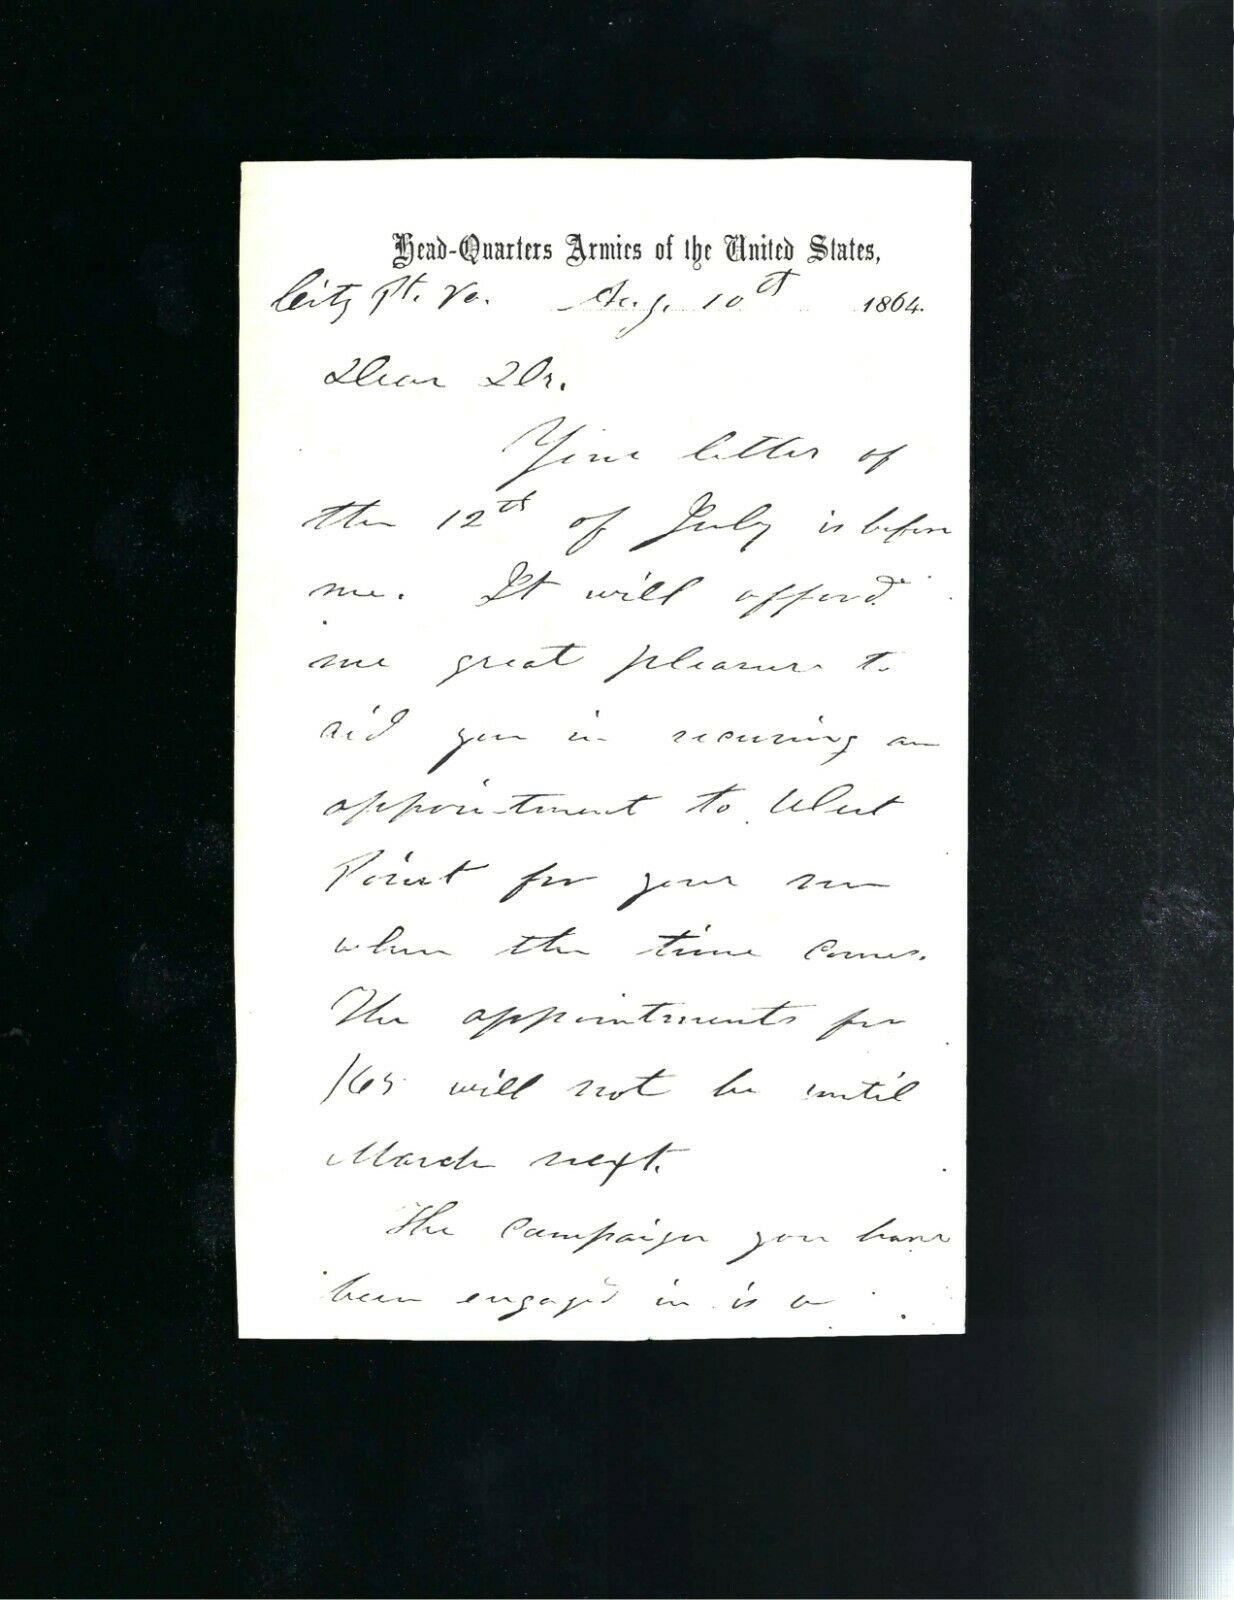 Head-Quarters Armies of the United States,
City Pt. Va. Aug. 10th 1864.
Dear Dr.
Your letter of
the 12th of July is before
me. It will afford
me great pleasure to
aid you in securing an
appointment to West
Point for your son
when the time comes.
The appointments for
/65 will not be until
March next.
The campaign you have
been engaged in is a